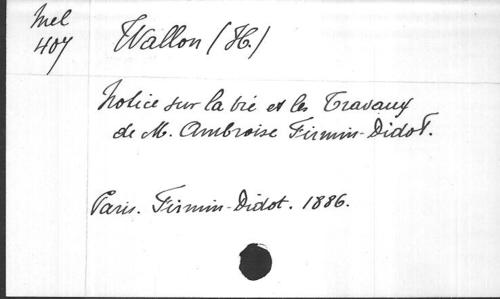 Mel
407
Wallon (H.)
Notice sur la vie et les Travaux
de M. Ambroise Firmin-Didot.
Paris. Firmin-Didot. 1886.